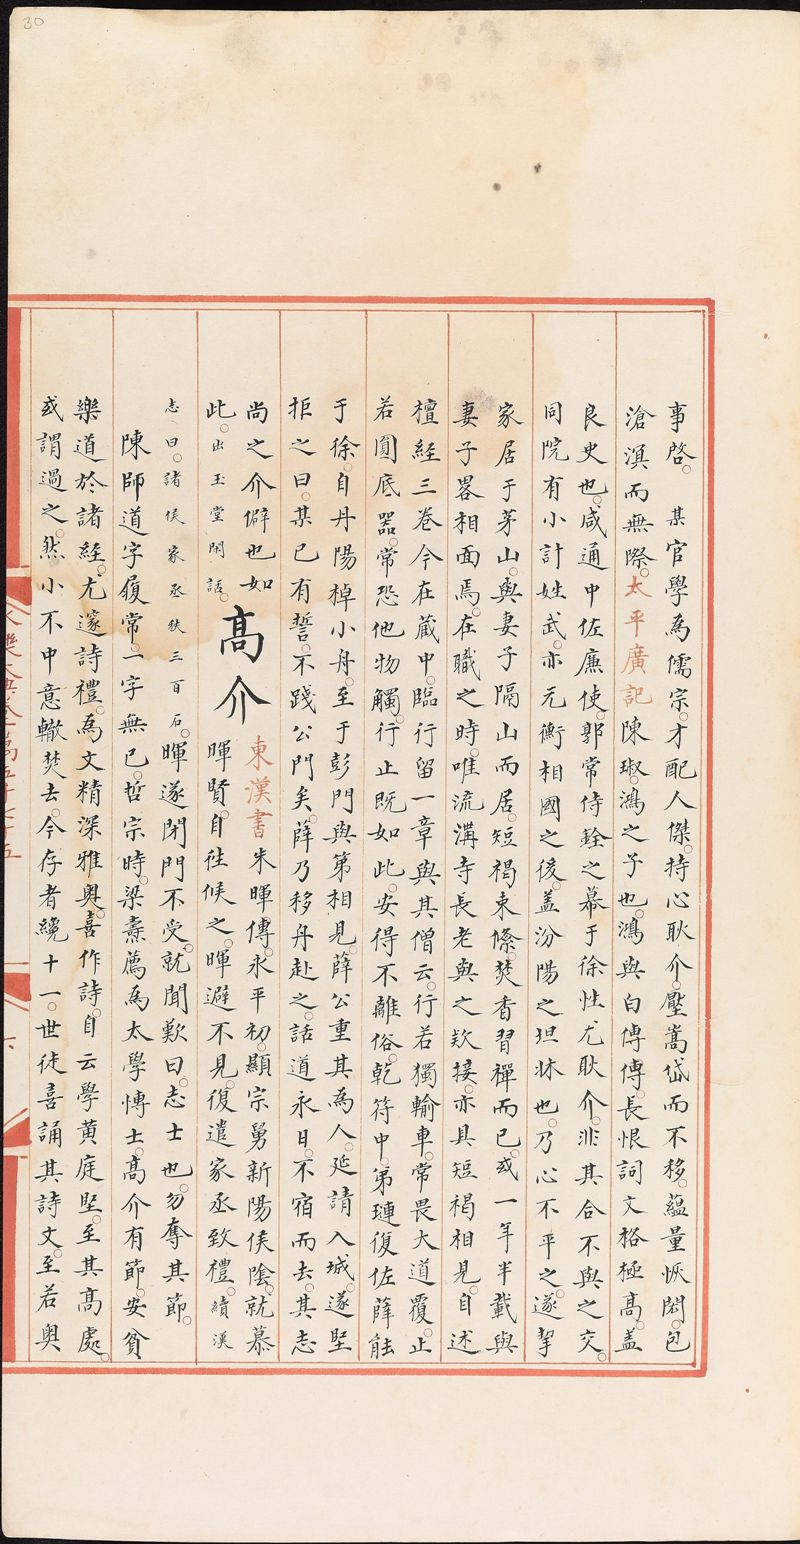 30
事啓。某官學為儒宗。才配人傑。持心耿介。壓嵩岱而不移。蘊量恢閎。包
滄溟而無際。太平廣記陳琡。鴻之子也。鴻與白傅傳長恨詞文格極高。盖
良史也。咸通中佐廉使。郭常侍銓之幕于徐性尤耿介。非其合不與之交。
同院有小計姓武。亦元衡相國之後。盖汾陽之坦牀也。乃心不平之。遂挈
家居于茅山。與妻子隔山而居。短褐束絛。焚香習禪而已。或一年半載與
妻子畧相面焉。在職之時。唯流溝寺長老與之欵接。亦具短褐相見。自述
檀經三卷今在藏中。臨行留一章與其僧云。行若獨輸車。常畏大道覆。止
若圓底噐。常恐他物觸。行止既如此。安得不離俗。乾符中。弟璉復佐薛能
于徐。自丹陽棹小舟。至于彭門與弟相見。薛公重其為人。延請入城。遂堅
拒之曰。某已有誓。不踐公門矣。薛乃移舟赴之。話道永日。不宿而去。其志
尚之介僻也如
此。出玉堂閒話。
高介
東漢書朱暉傳。永平初。顯宗舅新陽侯陰就慕
暉賢。自往候之。暉避不見。復遣家丞致禮。續漢
志曰。諸侯家丞秩三百石。暉遂閉門不受。就聞歎曰。志士也。勿奪其節。
陳師道字履常。一字無已。哲宗時。梁燾薦為太學博士。高介有節。安貧
樂道於諸經。尤邃詩禮。為文精深雅奥。喜作詩。自云學黄庭堅。至其高處。
或謂過之。然小不中意轍焚去。今存者纔十一。世徒喜誦其詩文。至若奥
永樂大典卷一萬五千七十五
六